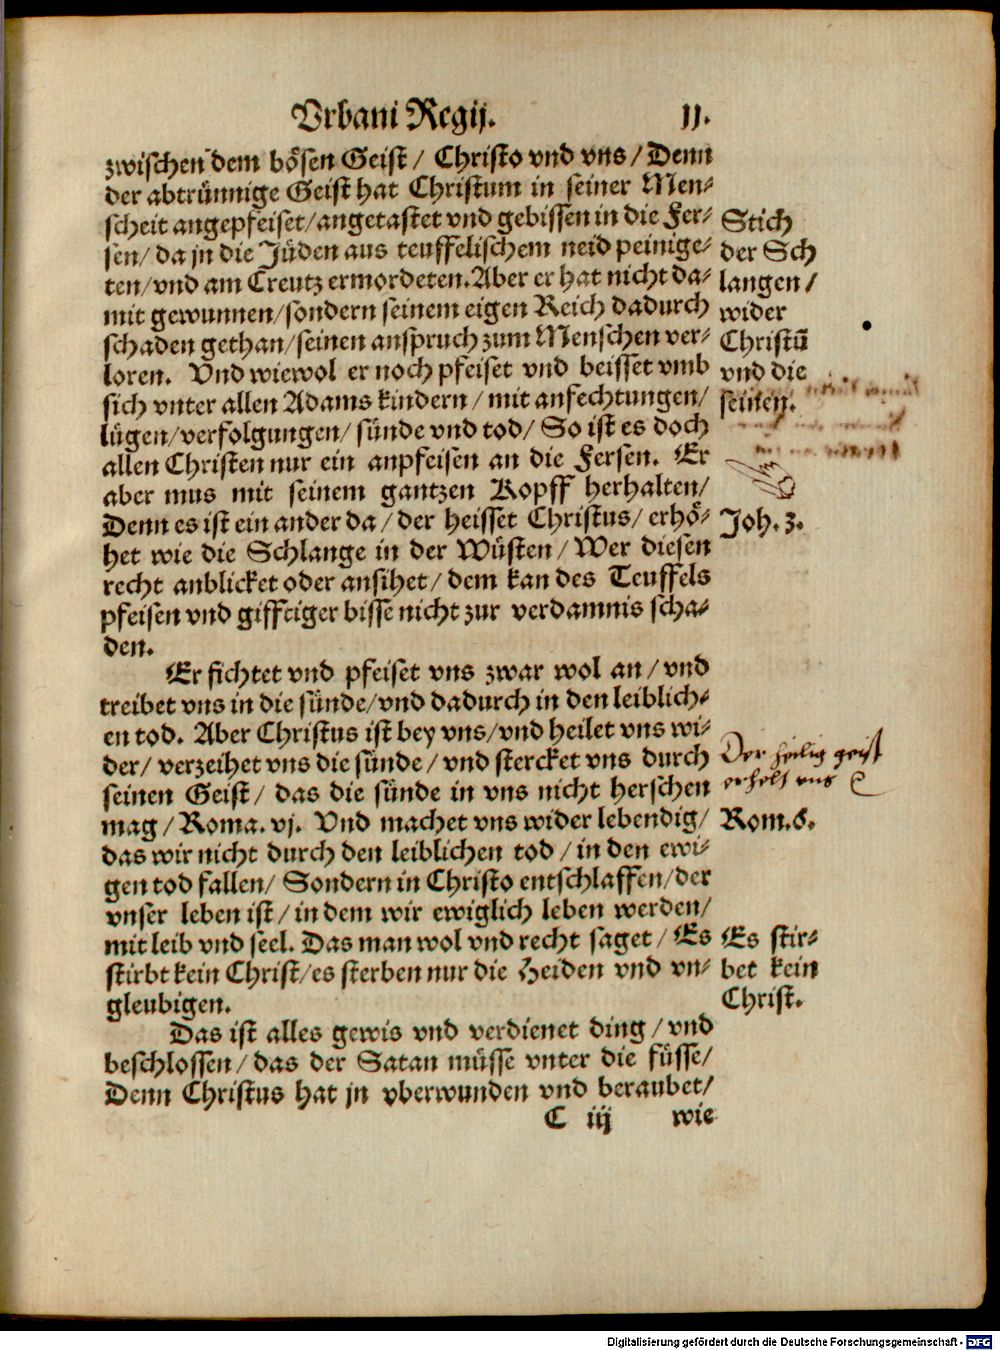 Vrbani Regij. 11.
zwischen dem bösen Geist / Christo vnd vns / Denn
der abtrünnige Geist hat Christum in seiner Men-
scheit angepfeiset/angetastet vnd gebissen in die Fer-
sen/ da jn die Jüden aus teuffelischem neid peinige-
ten/vnd am Creutz ermordeten. Aber er hat nicht da-
mit gewunnen/sondern seinem eigen Reich dadurch
schaden gethan/seinen anspruch zum Menschen ver-
loren. Vnd wiewol er noch pfeiset vnd beisset vmb
sich vnter allen Adams kindern / mit anfechtungen/
lügen/verfolgungen/ sünde vnd tod/ So ist es doch
allen Christen nur ein anpfeisen an die Fersen. Er
aber mus mit seinem gantzen Kopff herhalten/
Denn es ist ein ander da / der heisset Christus/ erhö-
het wie die Schlange in der Wüsten / Wer diesen
recht anblicket oder ansihet/ dem kan des Teuffels
pfeisen vnd gifftiger bisse nicht zur verdamnis scha-
den.
Stich
der Sch
langen /
wider
Christū
vnd die
seinen.
Joh. 3.
Er fichtet vnd pfeiset vns zwar wol an / vnd
treibet vns in die sünde/vnd dadurch in den leiblich-
en tod. Aber Christus ist bey vns/vnd heilet vns wi-
der/ verzeihet vns die sünde / vnd stercket vns durch
seinen Geist/ das die sünde in vns nicht herschen
mag / Roma. vj. Vnd machet vns wider lebendig/
das wir nicht durch den leiblichen tod / in den ewi-
gen tod fallen/ Sondern in Christo entschlaffen/der
vnser leben ist / in dem wir ewiglich leben werden/
mit leib vnd seel. Das man wol vnd recht saget / Es
stirbt kein Christ/es sterben nur die Heiden vnd vn-
gleubigen.
Der heilig geist
erhelt vns
Rom. 6.
Es stir-
bet kein
Christ.
Das ist alles gewis vnd verdienet ding / vnd
beschlossen / das der Satan müsse vnter die füsse/
Denn Christus hat jn vberwunden vnd beraubet/
C iij wie
Digitalisierung gefördert durch die Deutsche Forschungsgemeinschaft - DFG